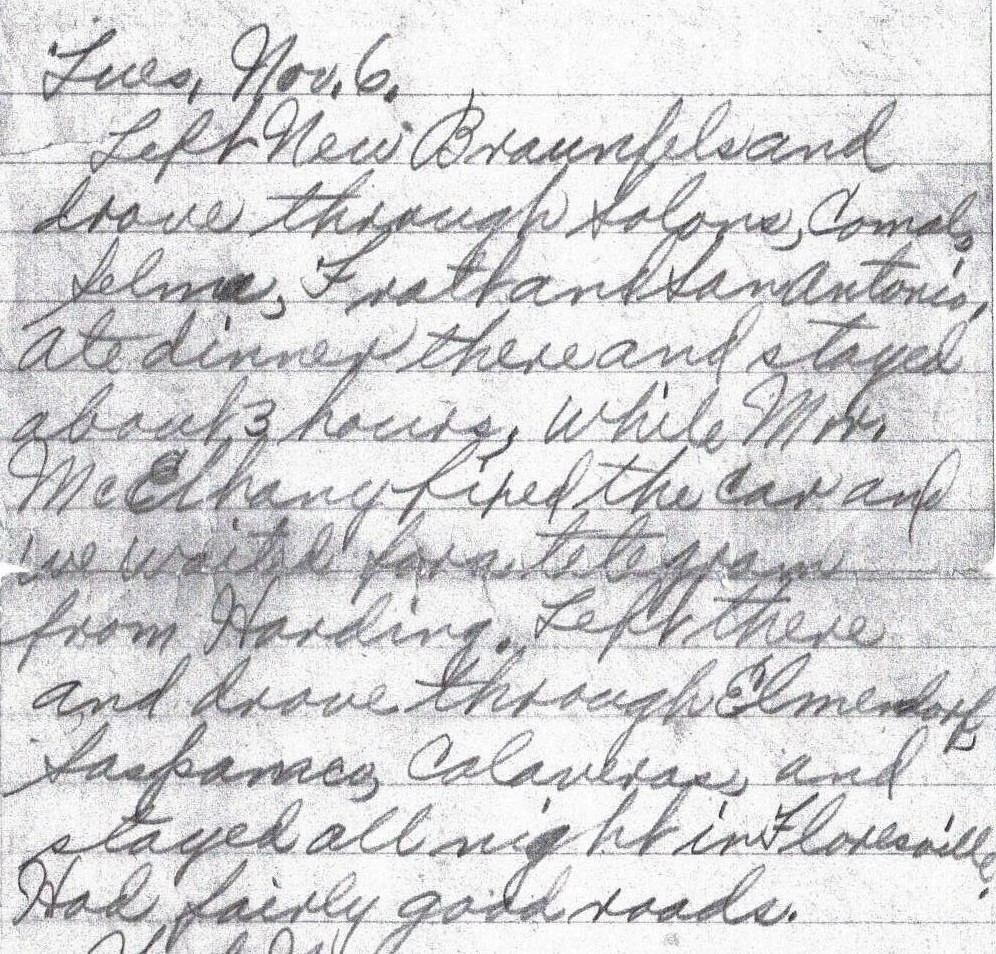 Tues, Nov. 6.
Left New Braunfels and
drove through Solons, Comal,
Selma, Fratt and San Antonio,
Ate dinner there and stayed
about 3 hours, while Mr.
McElhany fixed the car and
we waited for a telegram
from Harding. Left there
and drove through Elmendorf
Saspamco, Calaveras, and
stayed all night in Floresville.
Had fairly good roads.